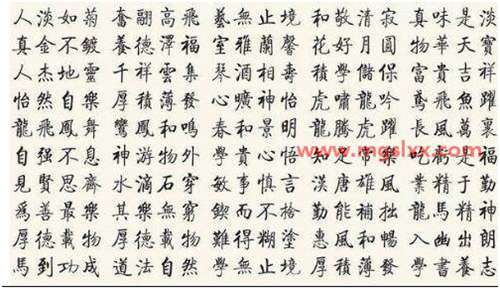 人淡如菊 奮翮高飛 藝無止境 和敬清寂 真味是淡
真金不鍍 養德澤福 室雅蘭馨 花好月圓 物華天寶
人杰地靈 千祥雲集 琴酒相壽 學儲保 富貴吉祥
怡然自樂 厚積薄發 心曠神怡 虎嘯龍吟 鳶飛魚躍
龍飛鳳舞 鸞鳳和鳴 春和景明 龍騰虎躍 長風萬裏
自强不息 神游物外 學貴心悟 知足常樂 是福
www.mgslxx.com
見賢思齊 水滴石穿 敏事慎言 漢唐雄風 業精于勤
爲善最樂 其樂無窮 鍥而不捨 勤能補拙 龍馬精神
厚德載物 厚德載物 難得糊塗 惠風和暢 入幽出朗
馬到功成 道法自然 學無止境 厚積薄發 學書養志